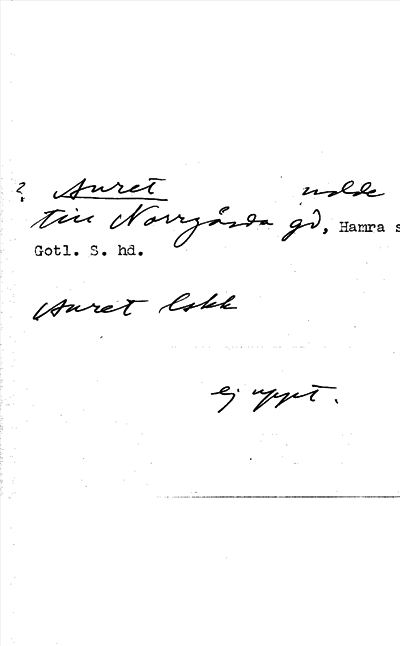 ? Auret
till Norrgårda gd, Hamra s
Gotl. S. hd.
Auret
ej uppt.